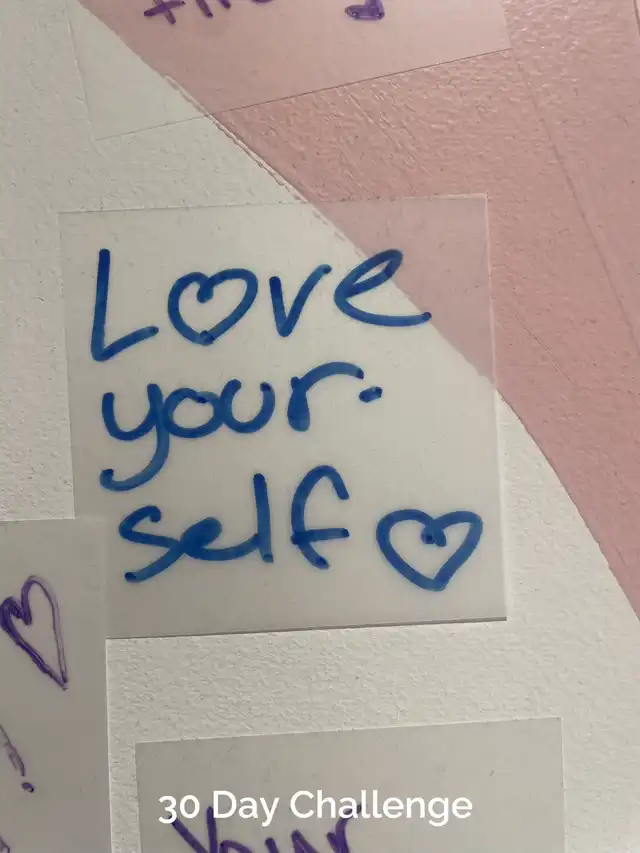 Love
your-
self
30 Day Challenge
your